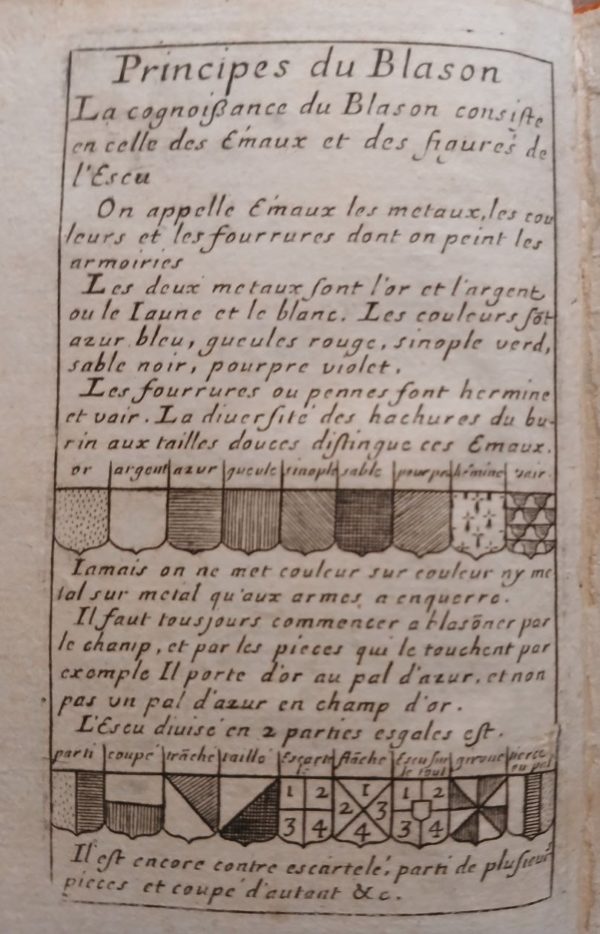 Principes du Blason
La cognoißance du Blason consiste
en celle des Emaux et des figures de
l'Escu
On appelle Emaux les metaux, les cou
leurs et les fourrures dont on peint les
armoiries
Les deux metaux sont l'or et l'argent
ou le Iaune et le blanc. Les couleurs sõt
azur bleu, gueules rouge, sinople verd,
sable noir, pourpre violet.
Les fourrures ou pennes sont hermine
et vair. La diuersité des hachures du bu-
rin aux tailles douces distingue ces Emaux.
or argent azur gueule sinople sable pourpre hermine vair
Iamais on ne met couleur sur couleur ny me
tal sur metal qu'aux armes a enquerre.
Il faut tousjours commencer a blasõner par
le champ, et par les pieces qui le touchent par
exemple Il porte d'or au pal d'azur, et non
pas vn pal d'azur en champ d'or.
L'Escu diuisé en 2 parties esgales est.
parti coupé trãché taillé Escarte flãché Escu sur gironé tierce
lé le tout en pal
1 2 1 1 2
2 3
3 4 4 3 4
Il est encore contre escartelé, parti de plusieurs
pieces et coupé d'autant &c.